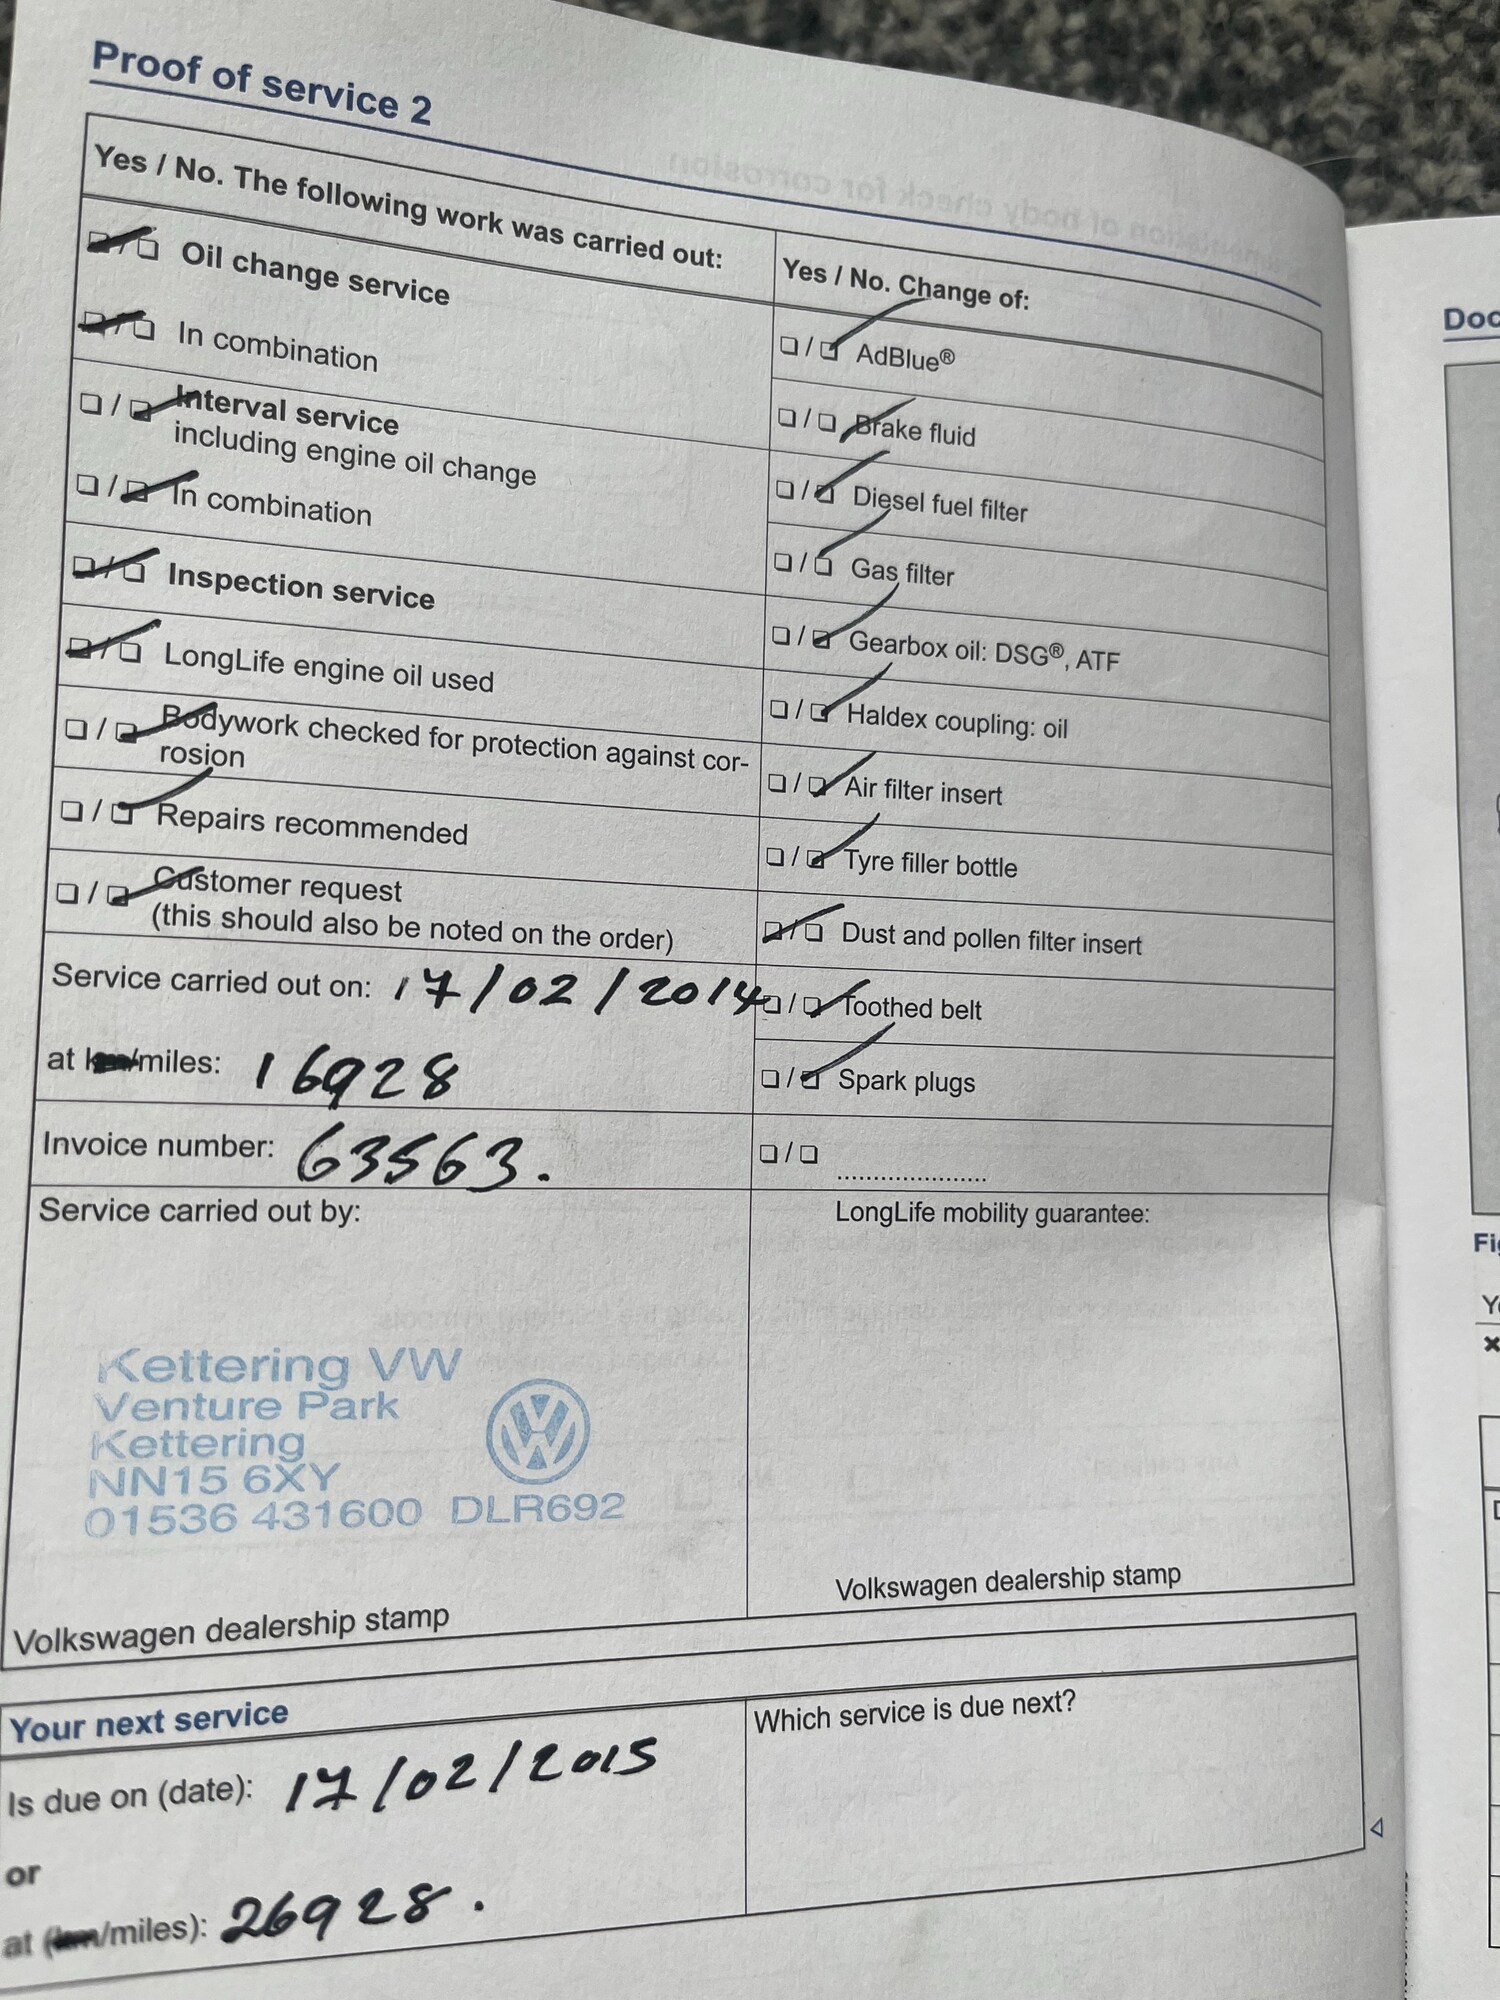 Proof of service 2
Yes / No. The following work was carried out:
❏/❏ Oil change service
❏/❏ In combination
❏/❏ Interval service
including engine oil change
❏/❏ In combination
❏/❏ Inspection service
❏/❏ LongLife engine oil used
❏/❏ Bodywork checked for protection against cor-
rosion
❏/❏ Repairs recommended
❏/❏ Customer request
(this should also be noted on the order)
Service carried out on: 17/02/2014
at km/miles: 16928
Invoice number: 63563.
Yes / No. Change of:
❏/❏ AdBlue®
❏/❏ Brake fluid
❏/❏ Diesel fuel filter
❏/❏ Gas filter
❏/❏ Gearbox oil: DSG®, ATF
❏/❏ Haldex coupling: oil
❏/❏ Air filter insert
❏/❏ Tyre filler bottle
❏/❏ Dust and pollen filter insert
❏/❏ Toothed belt
❏/❏ Spark plugs
❏/❏ .....................
Service carried out by:
Kettering VW
Venture Park
Kettering
NN15 6XY
01536 431600 DLR692
Volkswagen dealership stamp
LongLife mobility guarantee:
Volkswagen dealership stamp
Your next service
Is due on (date): 17/02/2015
or
at (km/miles): 26928.
Which service is due next?
Doc
Fig